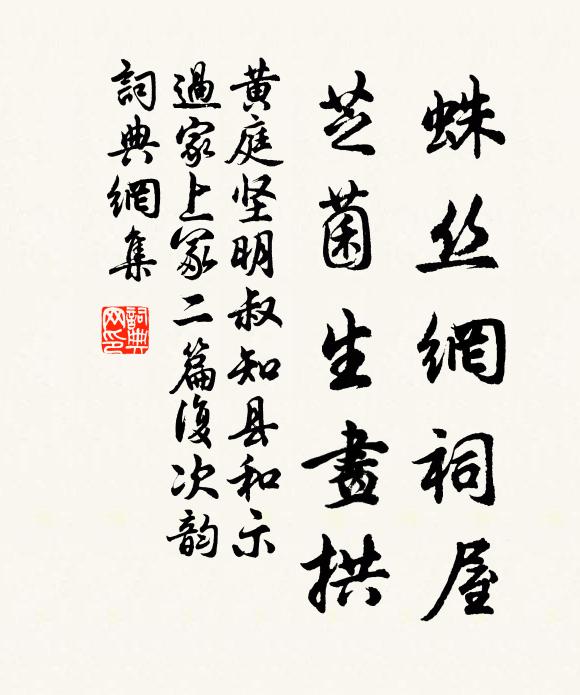 蛛丝網祠屋
芝菌生畫拱
黄庭坚明叔知县和示
過家上冢二篇復次韵
詞典網集
詞典网印